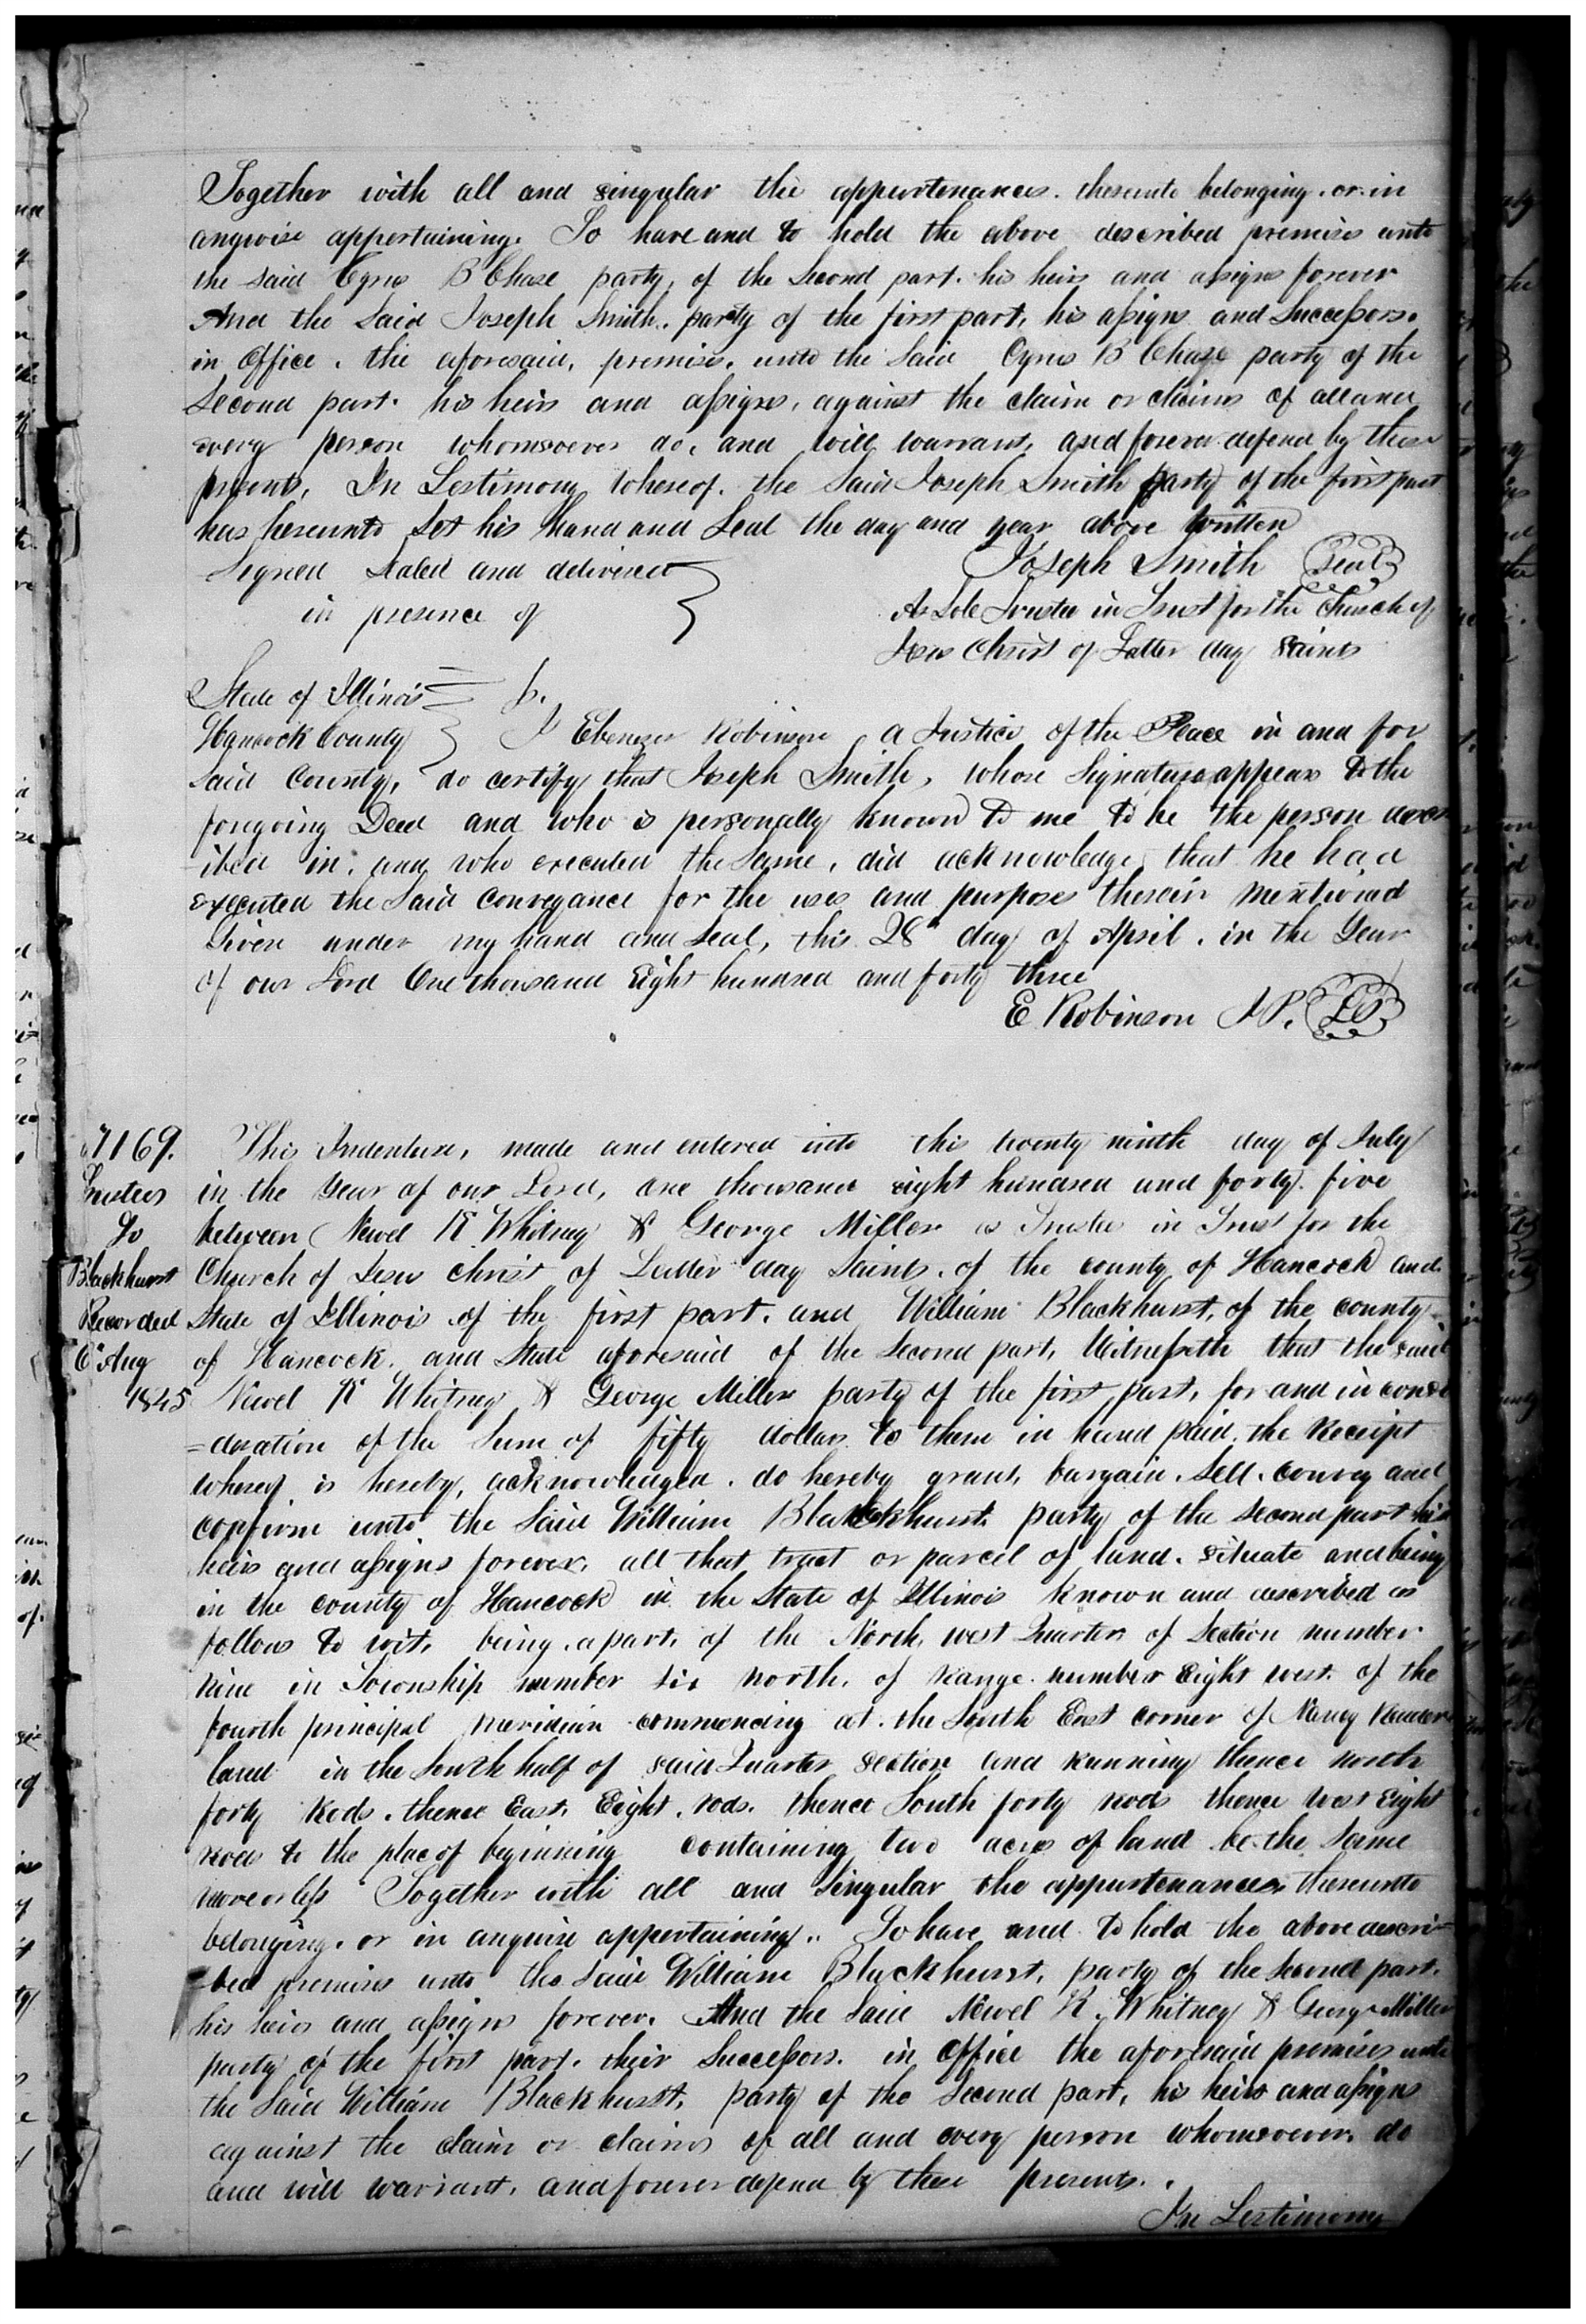 Together with all and singular the appurtenances. thereunto belonging. or in
anywise appertaining. To have and to hold the above described premises unto
the said Cyrus B Chase party, of the Second part. his heirs and assigns forever
And the Said Joseph Smith. party of the first part, his assigns and Successors.
in Office. the aforesaid, premises. unto the Said Cyrus B Chase party of the
Second part. his heirs and assigns, against the claim or claims of all and
every person whomsoever do, and will warrant, and forever defend by these
presents, In Testimony whereof. the Said Joseph Smith party of the first part
has hereunto Set his hand and Seal the day and year above written
Signed Sealed and delivered
in presence of
Joseph Smith Seal
As Sole Trustee in Trust for the Church of
Jesus Christ of Latter day Saints
State of Illinois
Hancock County I Ebenezer Robinson a Justice of the Peace in and for
Said County, do certify that Joseph Smith, whose Signature appears to the
foregoing Deed and who is personally known to me to be the person descr
ibed in, and who executed the Same, did acknowledge that he had
executed the Said Conveyance for the uses and purposes therein mentioned
Given under my hand and Seal, this 28th day of April. in the Year
of our Lord One thousand Eight hundred and forty three
E Robinson J P. LS
7169.
Trustees
To
Blackhurst
Recorded
6th Aug
1845
This Indenture, made and entered into this twenty ninth day of July
in the Year of our Lord, one thousand eight hundred and forty. five
between Newel K Whitney & George Miller as Trustee in Trust for the
Church of Jesus Christ of Latter day Saints. of the county of Hancock and
State of Illinois of the first part. and William Blackhurst, of the county
of Hancock. and State aforesaid of the Second part, Witnesseth that the said
Newel K Whitney & George Miller party of the first part, for and in consi
=deration of the Sum of fifty dollars to them in hand paid. the Receipt
whereof is hereby, acknowledged. do hereby grant, bargain. Sell. convey and
confirm unto the Said William Blackhurst party of the second part his
heirs and assigns forever, all that tract or parcel of land. situate and being
in the county of Hancock in the State of Illinois known and described as
follows to wit, being. a part, of the North, west Quarter of Section number
Nine in Township number six North. of Range. number Eight west. of the
fourth principal meridian commencing at. the South East corner of Nancy
land in the South half of said Quarter Section and Running thence north
forty Rods. thence East, Eight. rods. thence South forty rods thence west Eight
rods to the place of beginning containing two acres of land be the Same
more or less Together with all and Singular the appurtenances, thereunto
belonging. or in anywise appertaining. To have and to hold the above descri=
=bed premises unto the Said William Blackhurst, party of the Second part.
his heirs and assigns forever. And the Said Newel K. Whitney & George Miller
party of the first part. their Successors. in Office the aforesaid premises unto
the Said William Blackhurst, party of the Second part, his heirs and assigns
against the claim or claims of all and every person whomsoever. do
and will warrant, and forever defend by these presents.
In Testimony